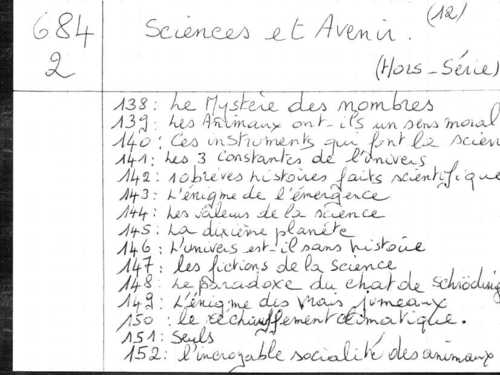 684
2
Sciences et Avenir.
(12)
(Hors-Série)
138: Le Mystère des nombres
139: Les Animaux ont-ils un sens moral
140: Ces instruments qui font la scien
141: Les 3 Constantes de l'univers
142: 10 brèves histoires faits scientifique
143: L'énigme de l'émergence
144: Les valeurs de la science
145: La dixième planète
146: L'univers est-il sans histoire
147: les fictions de la science
148: Le paradoxe du chat de schröding
149: L'énigme des vrais jumeaux
150: le réchauffement climatique.
151: Seuls
152: l'incroyable socialité des animaux